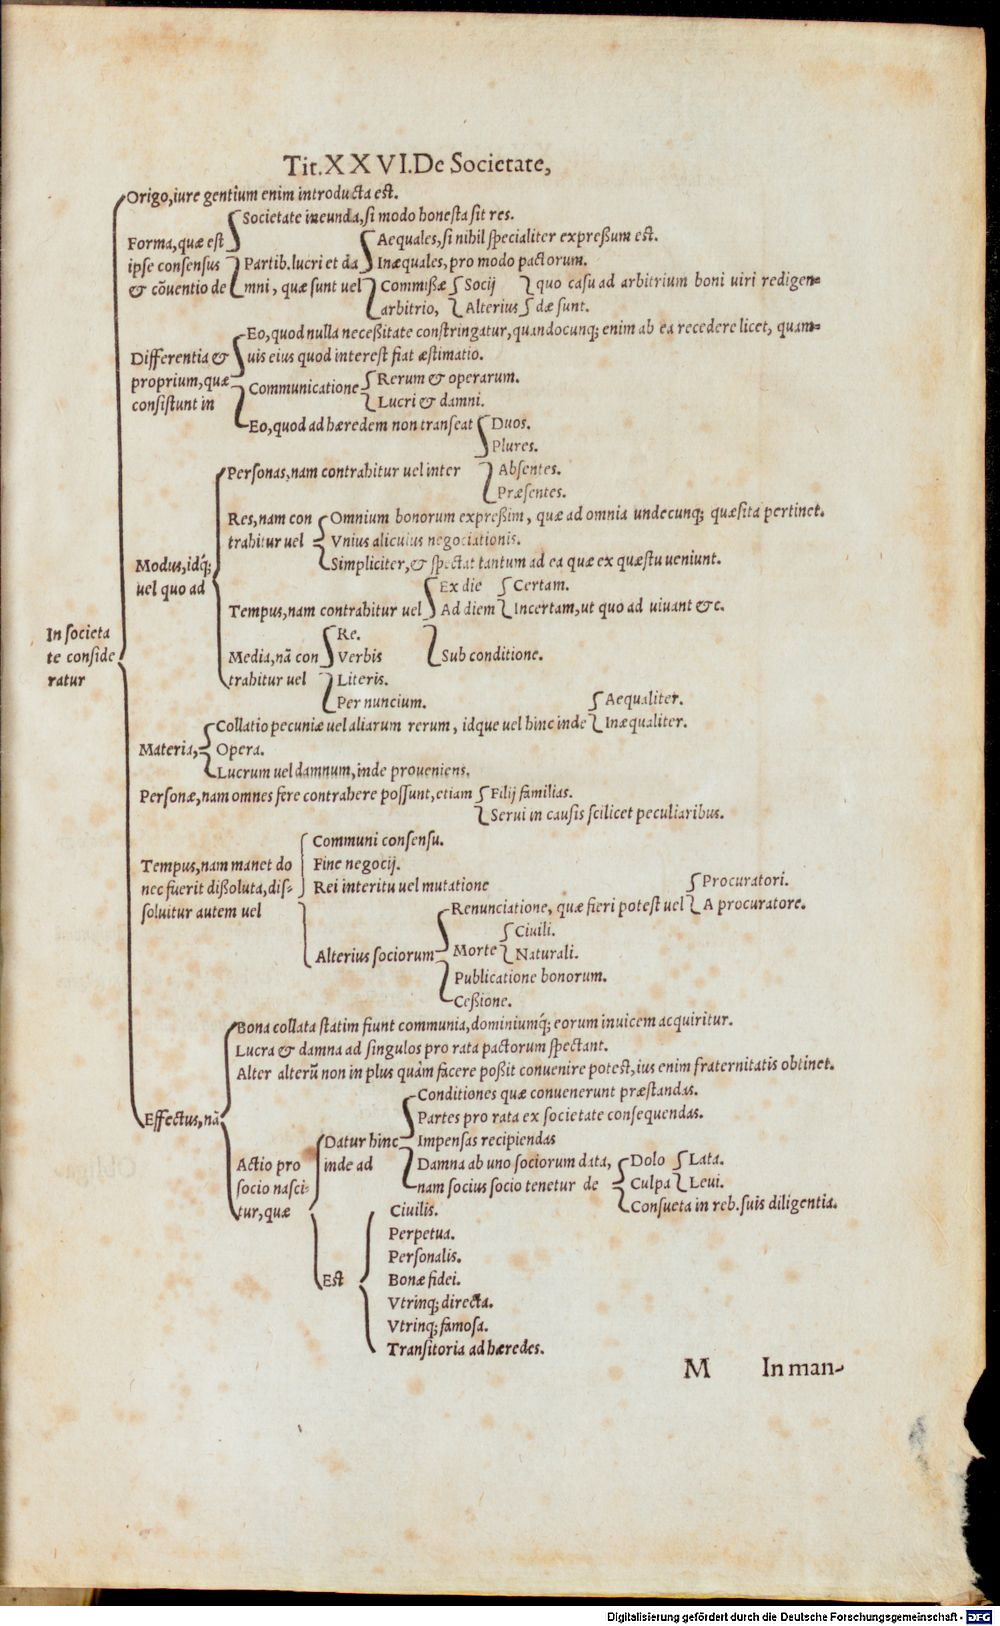 Tit.XXVI.De Societate,
Origo,iure gentium enim introducta est.
Societate ineunda,si modo honesta sit res.
Forma,quæ est
Aequales,si nihil specialiter expreßum est.
ipse consensus
Partib.lucri et da
Inæquales, pro modo pactorum.
& cōventio de
mni, quæ sunt vel
Commißæ
Socij
quo casu ad arbitrium boni viri redigen=
arbitrio,
Alterius
dæ sunt.
Eo,quod nulla neceßitate constringatur,quandocunq; enim ab ea recedere licet, quam=
Differentia &
vis eius quod interest fiat æstimatio.
proprium,quæ
Communicatione
Rerum & operarum.
consistunt in
Lucri & damni.
Eo,quod ad hæredem non transeat
Duos.
Plures.
Personas,nam contrahitur vel inter
Absentes.
Præsentes.
Res,nam con
Omnium bonorum expreßim, quæ ad omnia undecunq; quæsita pertinet.
trahitur vel
Vnius alicuius negociationis.
Simpliciter,& spectat tantum ad ea quæ ex quæstu veniunt.
Modus,idq́;
vel quo ad
Ex die
Certam.
Tempus,nam contrahitur vel
Ad diem
Incertam,ut quo ad vivant &c.
In societa
te conside
ratur
Re.
Media,nā con
Verbis
Sub conditione.
trahitur vel
Literis.
Per nuncium.
Aequaliter.
Collatio pecuniæ vel aliarum rerum, idque vel hinc inde
Inæqualiter.
Materia,
Opera.
Lucrum vel damnum,inde proueniens.
Personæ,nam omnes fere contrahere possunt,etiam
Filij familias.
Serui in causis scilicet peculiaribus.
Communi consensu.
Tempus,nam manet do
Fine negocij.
nec fuerit dißoluta,dis-
Rei interitu vel mutatione
Procuratori.
soluitur autem vel
Renunciatione, quæ fieri potest vel
A procuratore.
Ciuili.
Alterius sociorum
Morte
Naturali.
Publicatione bonorum.
Ceßione.
Bona collata statim fiunt communia,dominiumq́; eorum inuicem acquiritur.
Lucra & damna ad singulos pro rata pactorum spectant.
Alter alterū non in plus quàm facere poßit convenire potest,ius enim fraternitatis obtinet.
Effectus,nā
Conditiones quæ convenerunt præstandas.
Partes pro rata ex societate consequendas.
Datur hinc
Impensas recipiendas
Actio pro
inde ad
Damna ab uno sociorum data,
Dolo
Lata.
socio nasci-
nam socius socio tenetur de
Culpa
Leui.
tur,quæ
Consueta in reb.suis diligentia.
Civilis.
Perpetua.
Personalis.
Est
Bonæ fidei.
Vtrinq; directa.
Vtrinq; famosa.
Transitoria ad hæredes.
M In man-
Digitalisierung gefördert durch die Deutsche Forschungsgemeinschaft - DFG